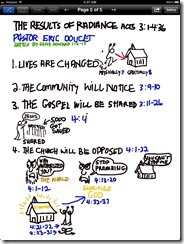 Page 5 of 5
THE RESULTS OF RADIANCE ACTS 3:1-4:36
PASTOR ERIC DOUCET
1. LIVES ARE CHANGED
PHYSICALLY 7 SPIRITUALLY 8
2. THE COMMUNITY WILL NOTICE 3:9-10
3. THE GOSPEL WILL BE SHARED 3:11-26
JESUS
SHARED
5000 GOT SAVED
4:4
4. THE CHURCH WILL BE OPPOSED 4:1-22
WHO AUTHORIZED YOU?
THE WORLD
4:1-12
STOP PREACHING
4:13-20
GLORIFIED GOD
4:21-22
4:23-31
4:32-37